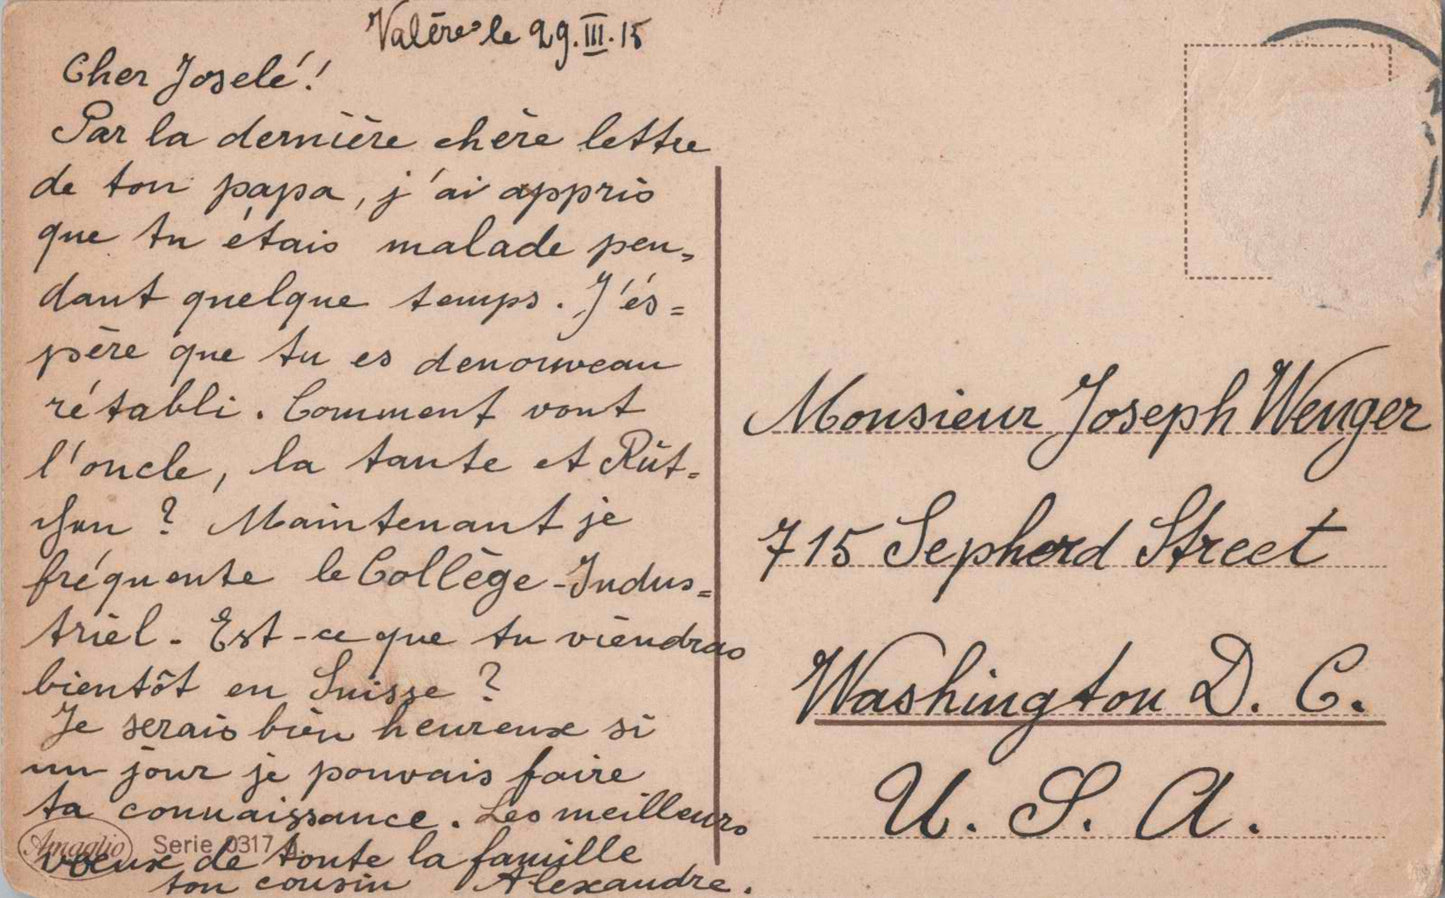 Valère le 29.III.15
Cher Joselé!
Par la dernière chère lettre
de ton papa, j'ai appris
que tu étais malade pen-
dant quelque temps. J'és=
père que tu es denouveau
rétabli. Comment vont
l'oncle, la tante et Rüt=
chen ? Maintenant je
fréquente le Collège-Indus=
triel. Est-ce que tu viendras
bientôt en Suisse ?
Je serais bien heureux si
un jour je pouvais faire
ta connaissance. Les meilleurs
voeux de toute la famille
ton cousin Alexandre.
Amaglio Serie 0317
Monsieur Joseph Wenger
715 Sepherd Street
Washington D. C.
U. S. A.